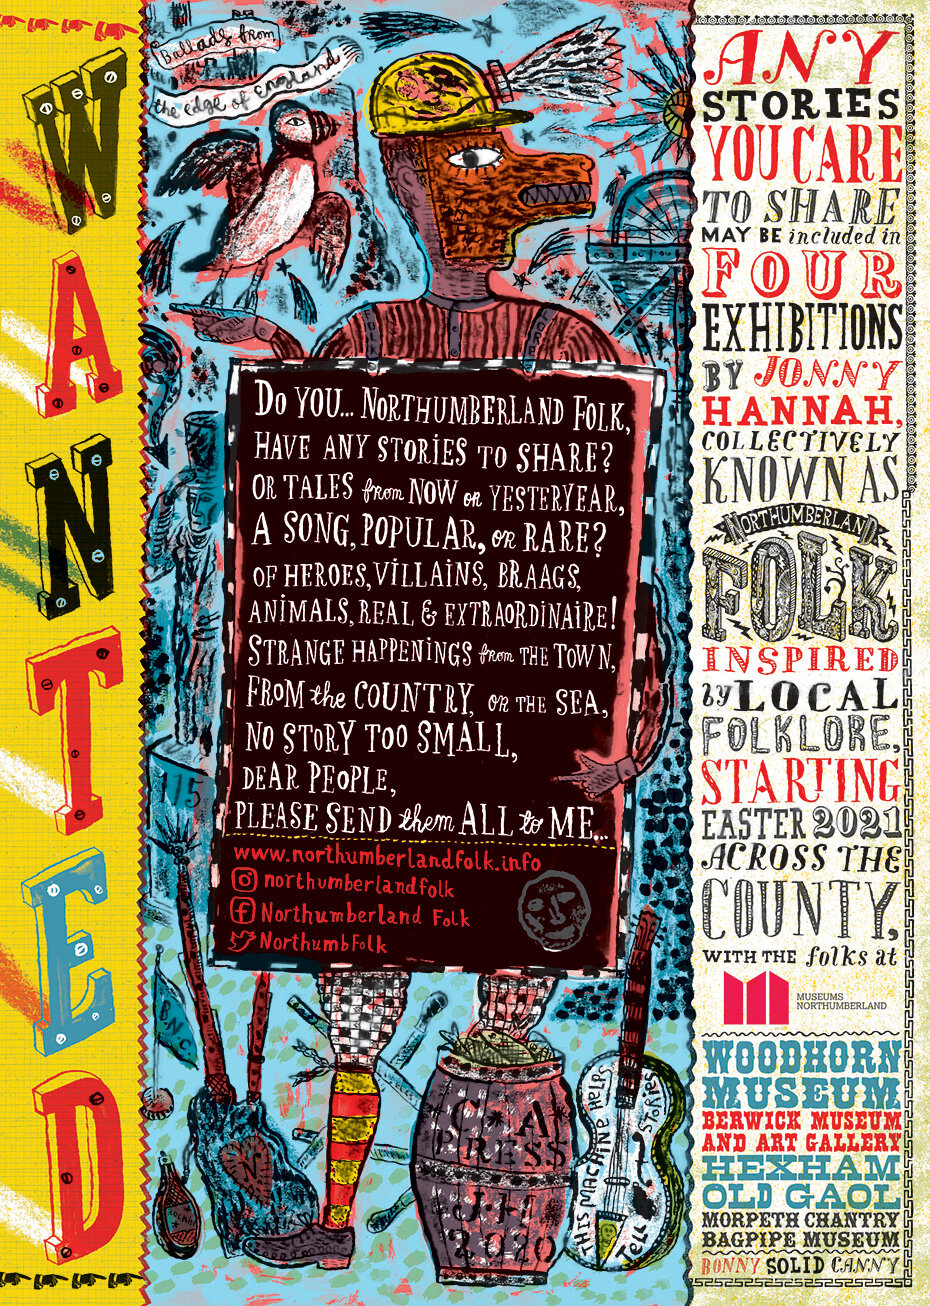 WANTED
Ballads from
the edge of England
DO YOU... NORTHUMBERLAND FOLK,
HAVE ANY STORIES TO SHARE?
OR TALES from NOW or YESTERYEAR,
A SONG, POPULAR, or RARE?
OF HEROES, VILLAINS, BRAAGS,
ANIMALS, REAL & EXTRAORDINAIRE!
STRANGE HAPPENINGS from THE TOWN,
FROM the COUNTRY, on THE SEA,
NO STORY TOO SMALL,
DEAR PEOPLE,
PLEASE SEND them ALL to ME...
www.northumberlandfolk.info
northumberlandfolk
Northumberland Folk
NorthumbFolk
115
BNC
N
C*A*
PRESS
J.H
2020
THIS MACHINE SHALL
TELL STORIES
ANY
STORIES
YOU CARE
TO SHARE
MAY BE included in
FOUR
EXHIBITIONS
BY JONNY
HANNAH,
COLLECTIVELY
KNOWN AS
NORTHUMBERLAN
FOLK
INSPIRED
by LOCAL
FOLKLORE,
STARTING
EASTER 2021
ACROSS THE
COUNTY,
WITH THE folks at
MUSEUMS
NORTHUMBERLAND
WOODHORN
MUSEUM
BERWICK MUSEUM
AND ART GALLERY
HEXHAM
OLD GAOL
MORPETH CHANTRY
BAGPIPE MUSEUM
BONNY SOLID CANNY